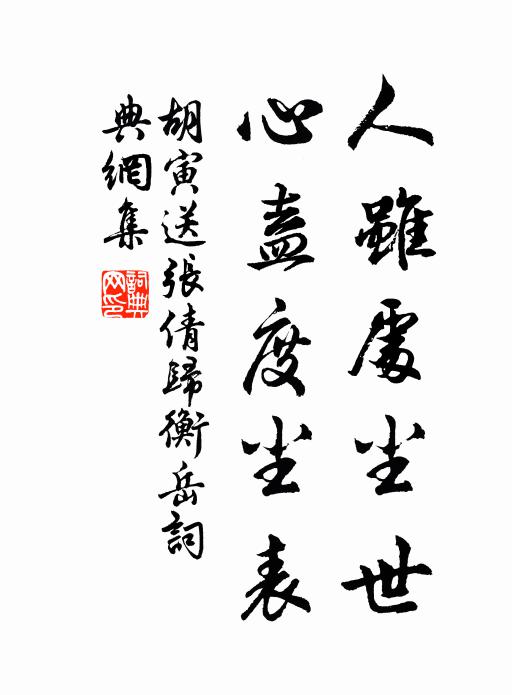 人雖處尘世
心盖度尘表
胡寅送張倩歸衡岳詞
典網集
詞典网印